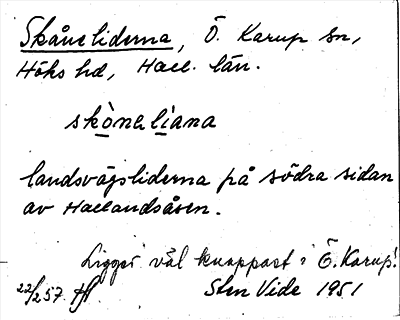 Skåneliderna, Ö. Karup sn,
Höks hd, Hall. län.
skòneliana
landsvägsliderna på södra sidan
av Hallandsåsen.
Ligger väl knappast i Ö. Karup!
22/2 57. Sten Vide 1951